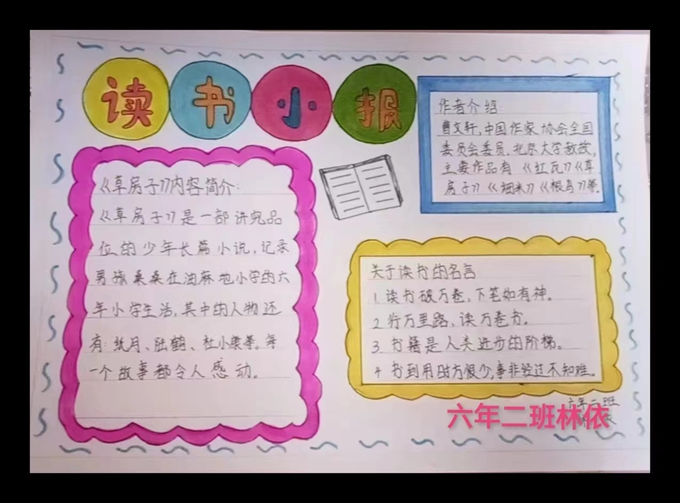 读书小报
《草房子》内容简介:
《草房子》是一部讲究品
位的少年长篇小说,记录
男孩桑桑在油麻地小学的六
年小学生活,其中的人物还
有:纸月、陆鹤、杜小康等。每
一个故事都令人感动。
作者介绍
曹文轩,中国作家协会全国
委员会委员,北京大学教授,
主要作品有《红瓦》《草
房子》《细米》《根鸟》等。
关于读书的名言
1.读书破万卷,下笔如有神。
2.行万里路,读万卷书。
3.书籍是人类进步的阶梯。
4.书到用时方恨少,事非经过不知难。
六年二班
六年二班林依